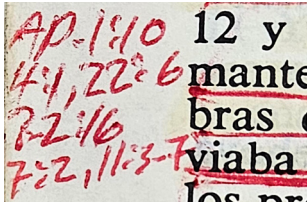 Ap. 1:10
4:1, 22:6
2-2:16
7:2, 11:3-7
12 y
mante
bras
viaba
los pr